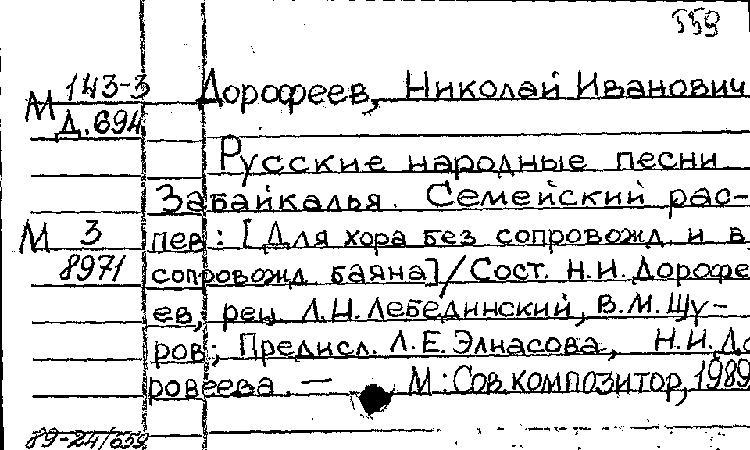 559
М 143-3 Дорофеев, Николай Иванович
Д.694
Русские народные песни
Забайкалья. Семейский рас-
М 3 пев: [Для хора без сопровожд. и в
8971 сопровожд. баяна]/Сост. Н.И. Дорофе
ев; рец. Л.Н. Лебединский, В.М. Щу-
ров; Предисл. Л.Е. Элиасова, Н.И. До
ровеева. — М.: Сов. композитор, 1989
89-24/659